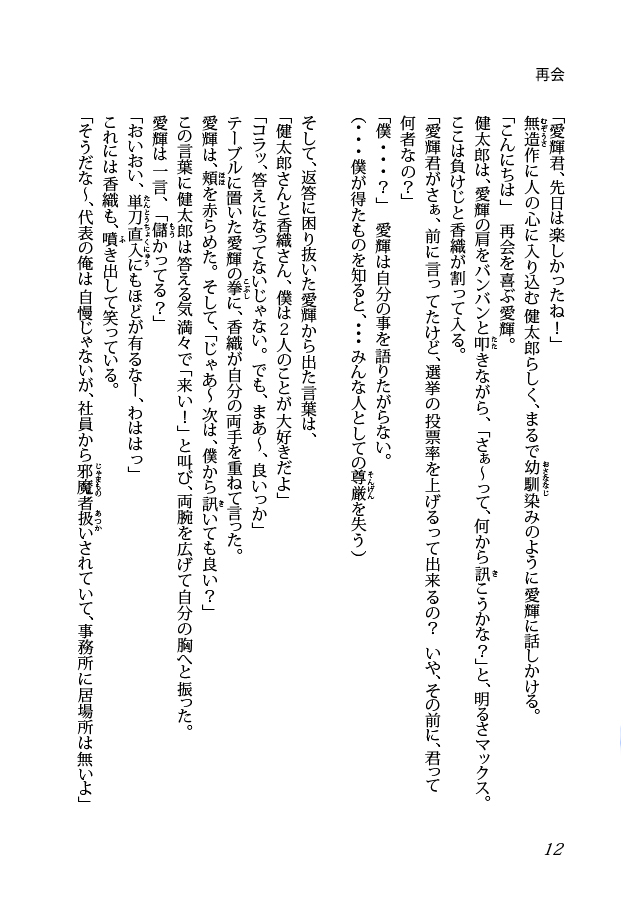 再会
「愛輝君、先日は楽しかったね！」
無造作に人の心に入り込む健太郎らしく、まるで幼馴染みのように愛輝に話しかける。
「こんにちは」　再会を喜ぶ愛輝。
健太郎は、愛輝の肩をバンバンと叩きながら、「さぁ～って、何から訊こうかな？」と、明るさマックス。
ここは負けじと香織が割って入る。
「愛輝君がさぁ、前に言ってたけど、選挙の投票率を上げるって出来るの？　いや、その前に、君って
何者なの？」
「僕・・・？」　愛輝は自分の事を語りたがらない。
（・・・僕が得たものを知ると、・・・みんな人としての尊厳を失う）
そして、返答に困り抜いた愛輝から出た言葉は、
「健太郎さんと香織さん、僕は２人のことが大好きだよ」
「コラッ、答えになってないじゃない。でも、まあ～、良いっか」
テーブルに置いた愛輝の拳に、香織が自分の両手を重ねて言った。
愛輝は、頬を赤らめた。そして、「じゃあ～次は、僕から訊いても良い？」
この言葉に健太郎は答える気満々で「来い！」と叫び、両腕を広げて自分の胸へと振った。
愛輝は一言、「儲かってる？」
「おいおい、単刀直入にもほどが有るなー、わははっ」
これには香織も、噴き出して笑っている。
「そうだな～、代表の俺は自慢じゃないが、社員から邪魔者扱いされていて、事務所に居場所は無いよ」
12